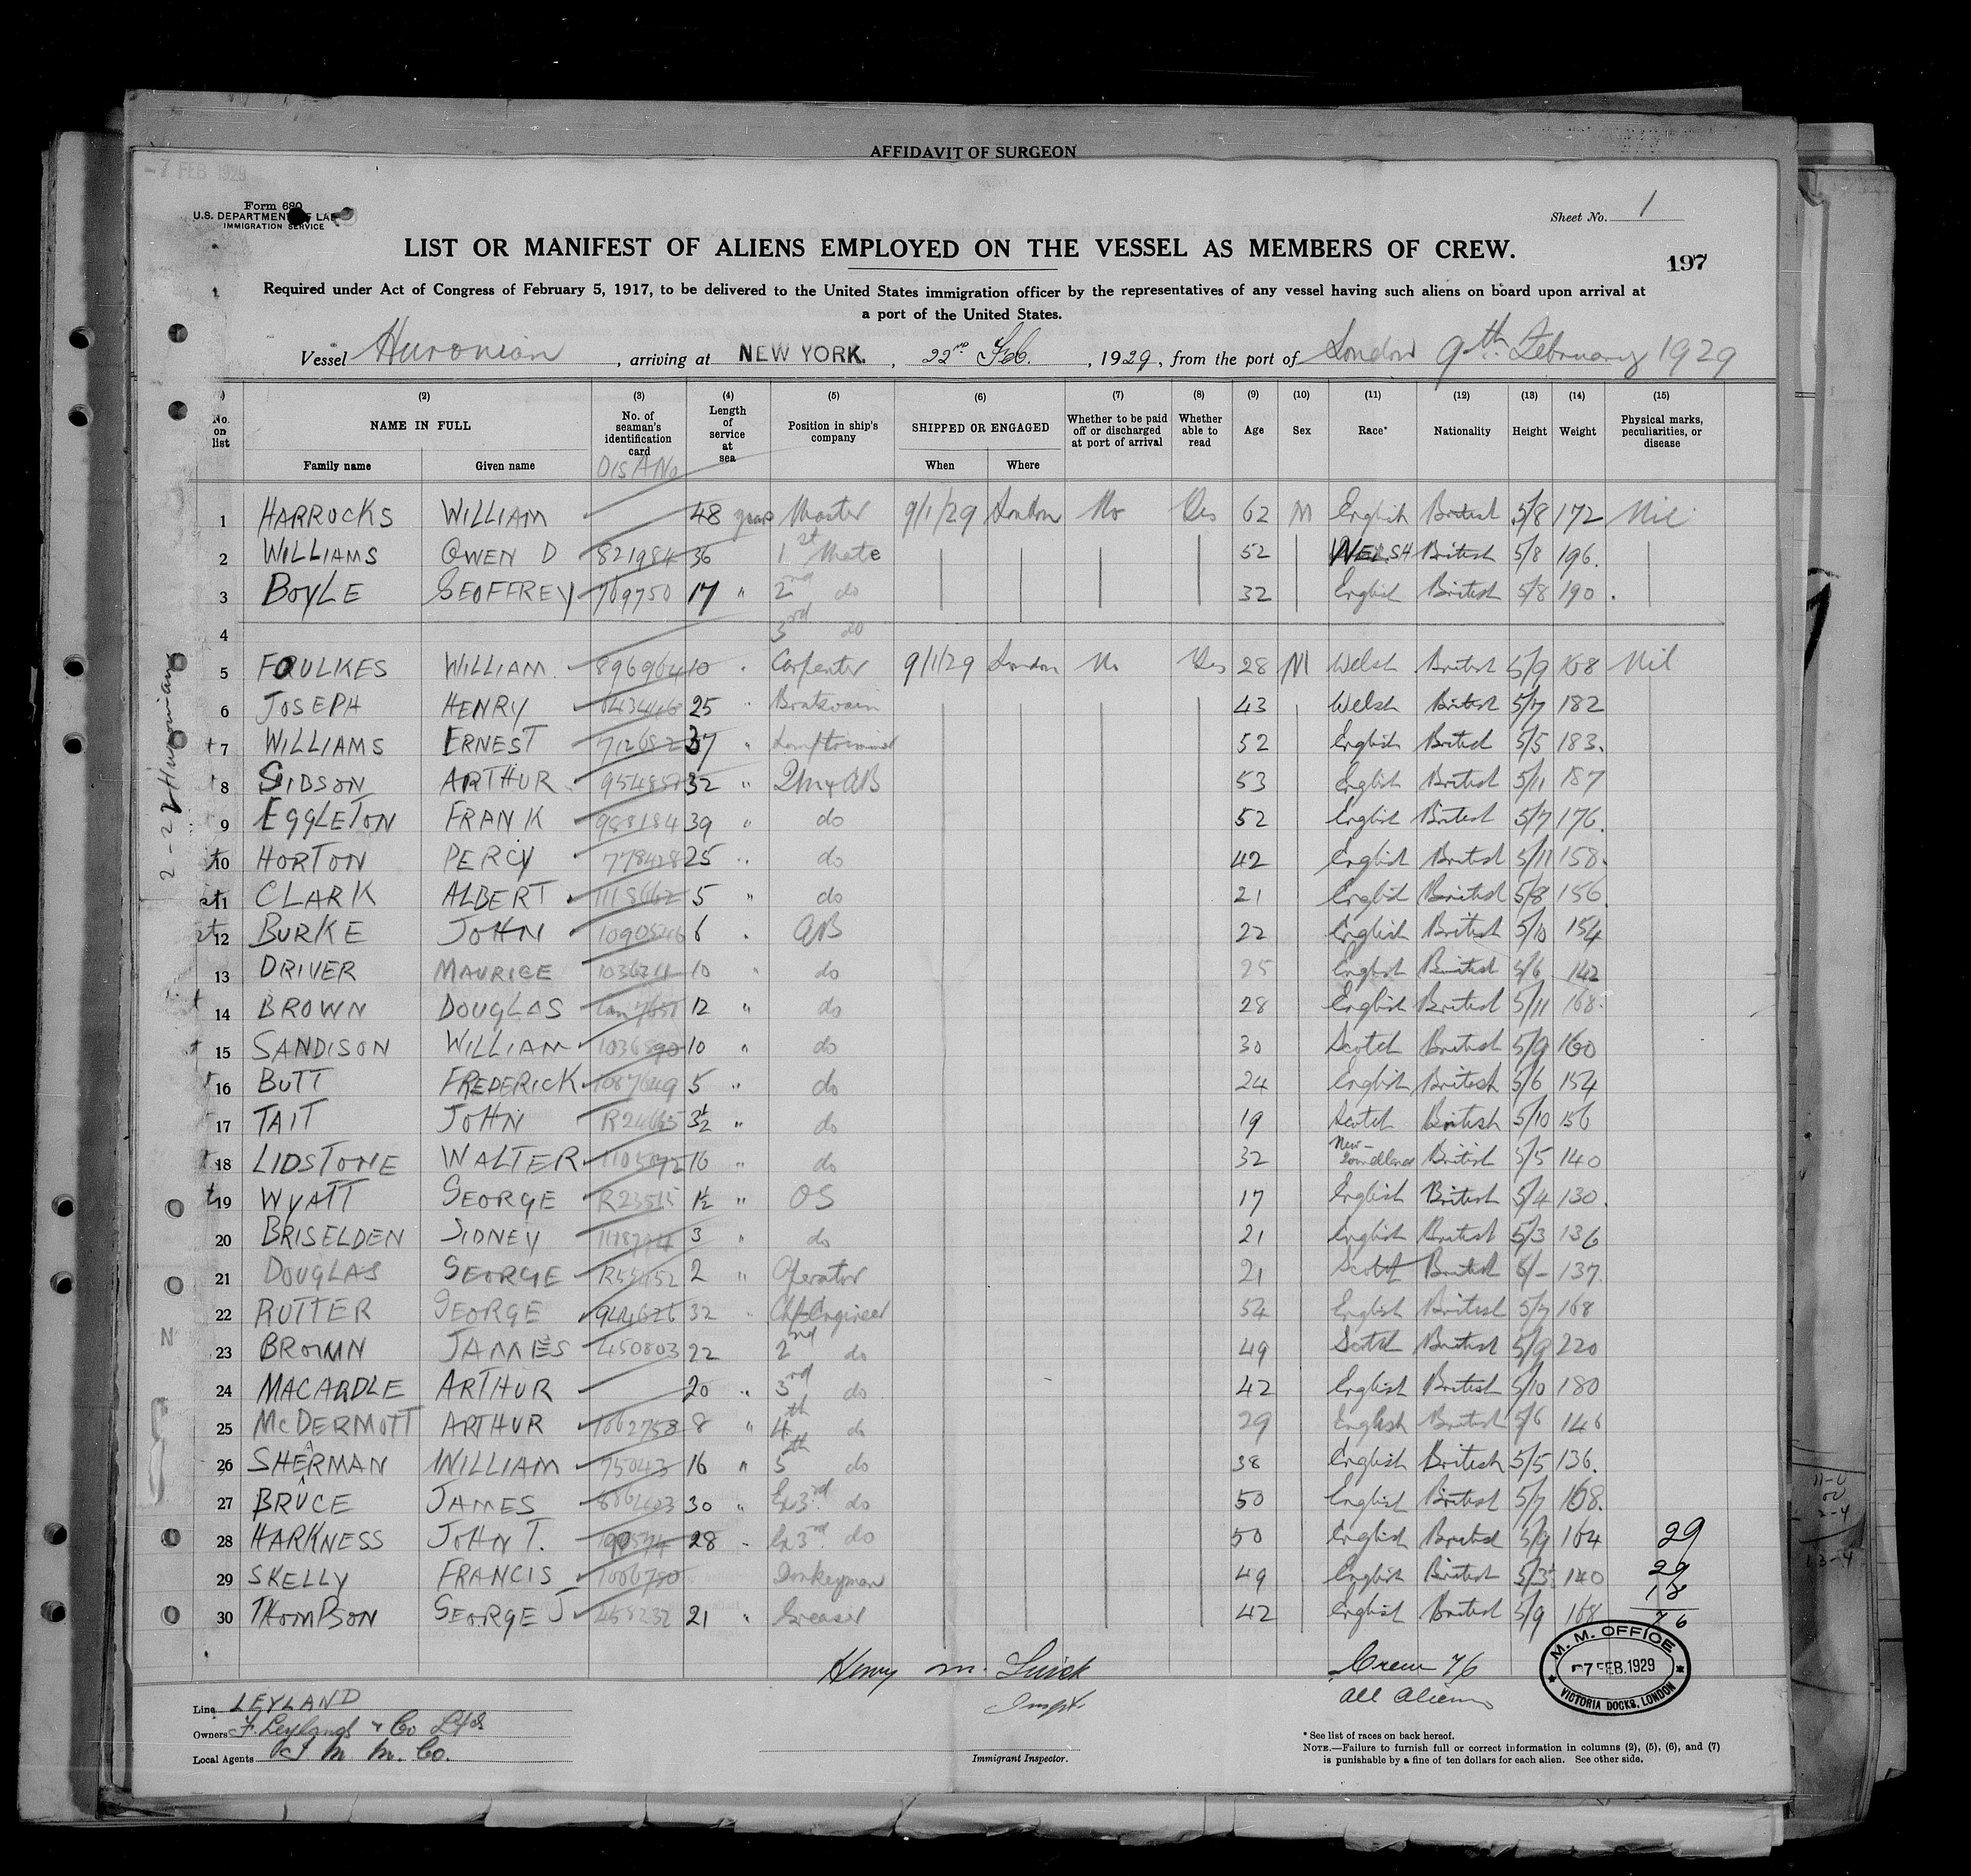 AFFIDAVIT OF SURGEON
-7 FEB 1929
Form 680
U.S. DEPARTMENT OF LAB
IMMIGRATION SERVICE
Sheet No. 1
LIST OR MANIFEST OF ALIENS EMPLOYED ON THE VESSEL AS MEMBERS OF CREW.
197
Required under Act of Congress of February 5, 1917, to be delivered to the United States immigration officer by the representatives of any vessel having such aliens on board upon arrival at
a port of the United States.
Vessel Huronian, arriving at NEW YORK., 22nd Feb., 1929, from the port of London 9th February 1929
(2) (3) (4) (5) (6) (7) (8) (9) (10) (11) (12) (13) (14) (15)
No. on list NAME IN FULL Family name Given name No. of seaman's identification card Dis A No Length of service at sea Position in ship's company SHIPPED OR ENGAGED When Where Whether to be paid off or discharged at port of arrival Whether able to read Age Sex Race* Nationality Height Weight Physical marks, peculiarities, or disease
1 HARROCKS WILLIAM 48 years Master 9/1/29 London No Yes 62 M English British 5/8 172 Nil
2 WILLIAMS OWEN D 821984 36 1st Mate 52 WELSH British 5/8 196.
3 BOYLE GEOFFREY 769750 17 " 2nd do 32 English British 5/8 190.
4 3rd do
5 FOULKES WILLIAM 896964 10 " Carpenter 9/1/29 London No Yes 28 M Welsh British 5/9 168 Nil
6 JOSEPH HENRY 25 " Boatswain 43 Welsh British 5/7 182
+7 WILLIAMS ERNEST 712682 37 " Lamptrimmer 52 English British 5/5 183.
+8 GIBSON ARTHUR 954851 32 " QM & AB 53 English British 5/11 187
+9 EGGLETON FRANK 988184 39 " do 52 English British 5/7 176.
+10 HORTON PERCY 778428 25 " do 42 English British 5/11 158.
11 CLARK ALBERT 1118662 5 " do 21 English British 5/8 156.
12 BURKE JOHN 1090546 6 " AB 22 English British 5/10 154
13 DRIVER MAURICE 10 " do 25 English British 5/6 142
14 BROWN DOUGLAS 12 " do 28 English British 5/11 168.
15 SANDISON WILLIAM 1036890 10 " do 30 Scotch British 5/9 160
16 BUTT FREDERICK 1087649 5 " do 24 English British 5/6 154
17 TAIT JOHN R24665 3½ " do 19 Scotch British 5/10 156
18 LIDSTONE WALTER 16 " do 32 British 5/5 140
19 WYATT GEORGE R23515 1½ " OS 17 English British 5/4 130.
20 BRISELDEN SIDNEY 3 " do 21 English British 5/3 136
21 DOUGLAS GEORGE 2 " Operator 21 Scotch British 6/- 137.
22 RUTTER GEORGE 944626 32 " Chf Engineer 54 English British 5/7 168
23 BROWN JAMES 450803 22 2nd do 49 Scotch British 5/9 220
24 MACARDLE ARTHUR 20 " 3rd do 42 English British 5/10 180
25 McDERMOTT ARTHUR 1062758 8 " 4th do 29 English British 5/6 146
26 SHERMAN WILLIAM 75043 16 " 5th do 38 English British 5/5 136.
27 BRUCE JAMES 30 " Ex 3rd do 50 English British 5/7 168.
28 HARKNESS JOHN T. 28 " Ex 3rd do 50 English British 5/9 164 29
29 SKELLY FRANCIS 1006780 Donkeyman 49 English British 5/3 140 29
18
30 THOMPSON GEORGE J 458232 21 " Greaser 42 English British 5/9 168 76
2-22 Huronian
Henry M. Crew 76
Inspt. All Aliens
M. M. OFFICE
-7 FEB. 1929
VICTORIA DOCKS, LONDON
Line LEYLAND
Owners F. Leyland & Co Ltd
Local Agents I M M. Co.
Immigrant Inspector.
* See list of races on back hereof.
NOTE.—Failure to furnish full or correct information in columns (2), (5), (6), and (7)
is punishable by a fine of ten dollars for each alien. See other side.